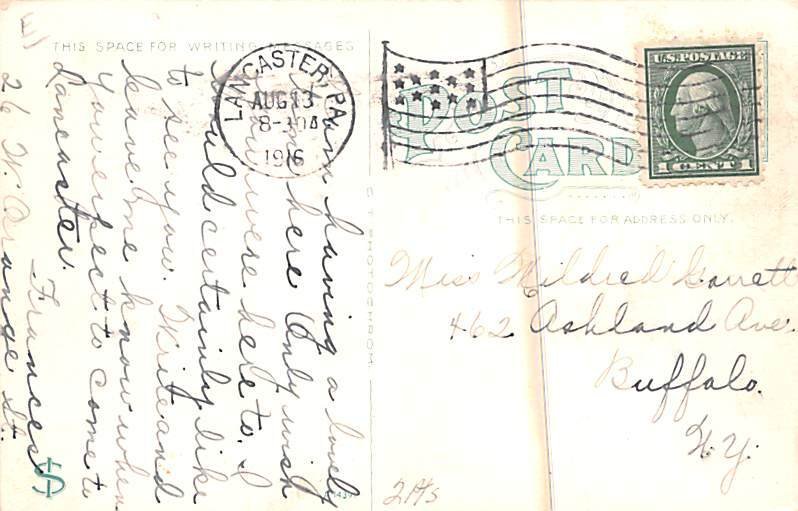 THIS SPACE FOR WRITING MESSAGES
I am having a lovely
time here Only wish
you were here to. I
would certainly like
to see you. Write and
leave me know when
you expect to come to
Lancaster.
Frances
26 W. Orange St.
LANCASTER, PA.
AUG 13
8-30A
1916
POST
CARD
U.S. POSTAGE
1 CENT 1
THIS SPACE FOR ADDRESS ONLY.
Miss Mildred Garrett
462 Ashland Ave.
Buffalo.
N.Y.
PHOTOCHROM